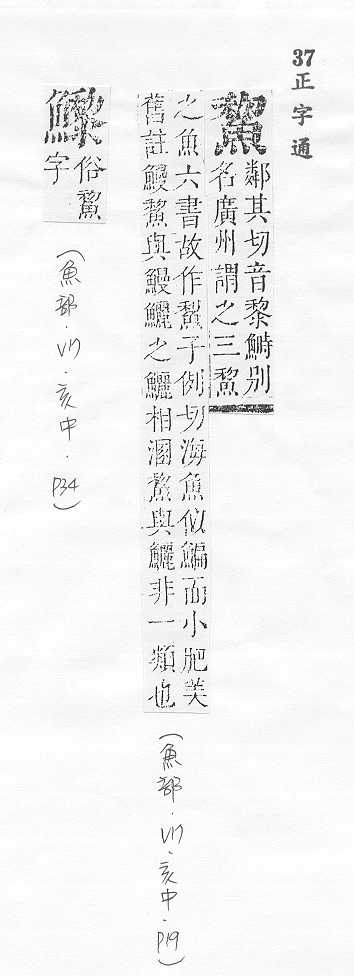 37正字通
鯬
鄰其切音黎鰣別
名廣州謂之三鯬
之魚六書故作鯬子例切海魚似鯿而小肥美
舊註鰻鯬與鰻鱺之鱺相溷鯬與鱺非一類也
(魚部.VII.亥中.P19)
俗鯬
字
(魚部.VII.亥中.P34)